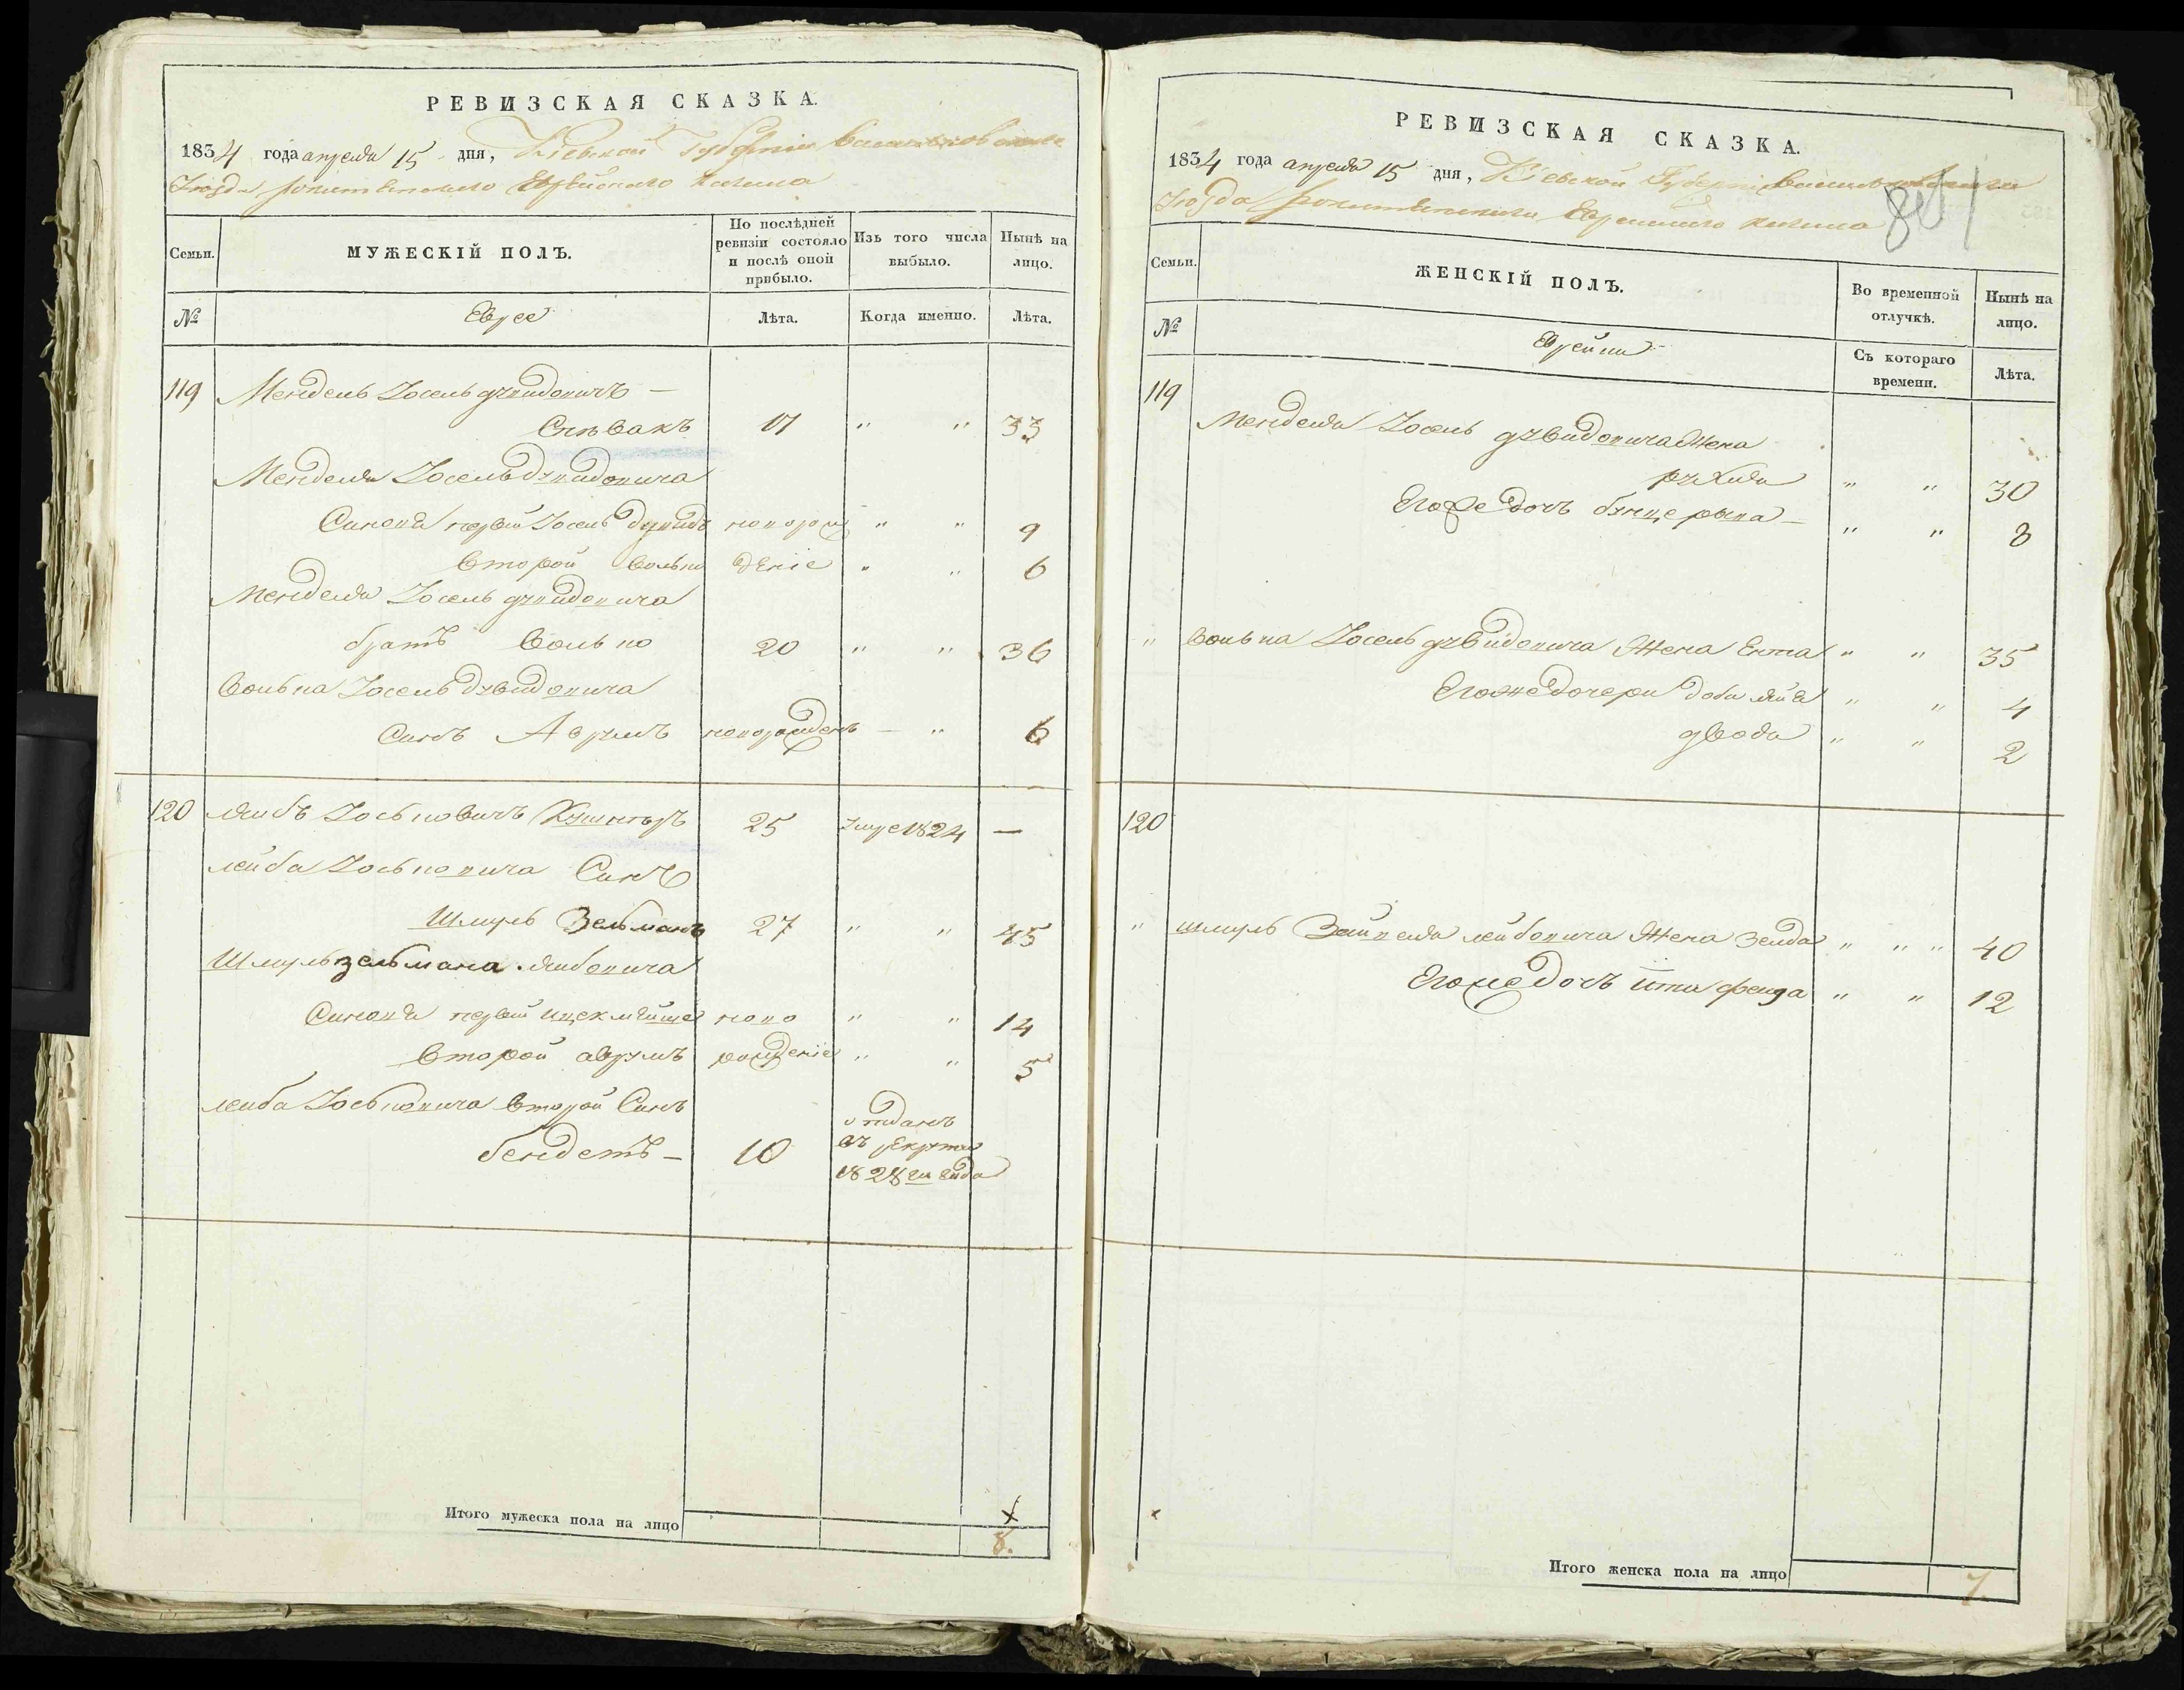 РЕВИЗСКАЯ СКАЗКА.
1834 года апреля 15 дня, Кіевской Губерніи Васильковскаго
Уезда Еврейского кагала
Семьи. МУЖЕСКІЙ ПОЛЪ. По послѣдней ревизіи состояло и послѣ оной прибыло. Изъ того числа выбыло. Нынѣ на лицо.
№ Еврее Лѣта. Когда именно. Лѣта.
119 Мендель Іосель дувидовичъ —
Спѣвакъ 17 " " 33
Менделя Іосель Дувидовича
Синовя первій Іосель дувидъ новорож " " 9
Второй Волько деніе " " 6
Менделя Іосель дувидовича
братъ Волько 20 " " 36
Волька Іосель Дувидовича
Синъ Аврумъ новорожденъ — " 6
120 Лейбъ Іосьповичъ 25 умре 1824 —
лейба Іосьповича Синъ
Шмуль Зельманъ 27 " " 45
Шмуль зельмана лейбовича
Синовя первій ново " " 14
Второй аврумъ рожденіе " " 5
лейба Іосьповича Второй Синъ
бендетъ — 10 отданъ
въ рекрути
1828 го года
Итого мужеска пола на лицо 8.
РЕВИЗСКАЯ СКАЗКА.
1834 года апреля 15 дня, Кіевской Губерніи Васильковскаго
Уезда Еврейского кагала
Семьи. ЖЕНСКІЙ ПОЛЪ. Во временной отлучкѣ. Нынѣ на лицо.
№ Еврейки Съ котораго времени. Лѣта.
119
Менделя Іосель дувидовича Жена
рухля " " 30
Егоже дочь — " " 8
" Волька Іосель дувидовича Жена Ента " " 35
Егоже дочери " " 4
двойя " " 2
120
" шмуль Зайвеля лейбовича Жена Зелда " " " 40
Егоже дочь ита фейга " " 12
Итого женска пола на лицо 7.